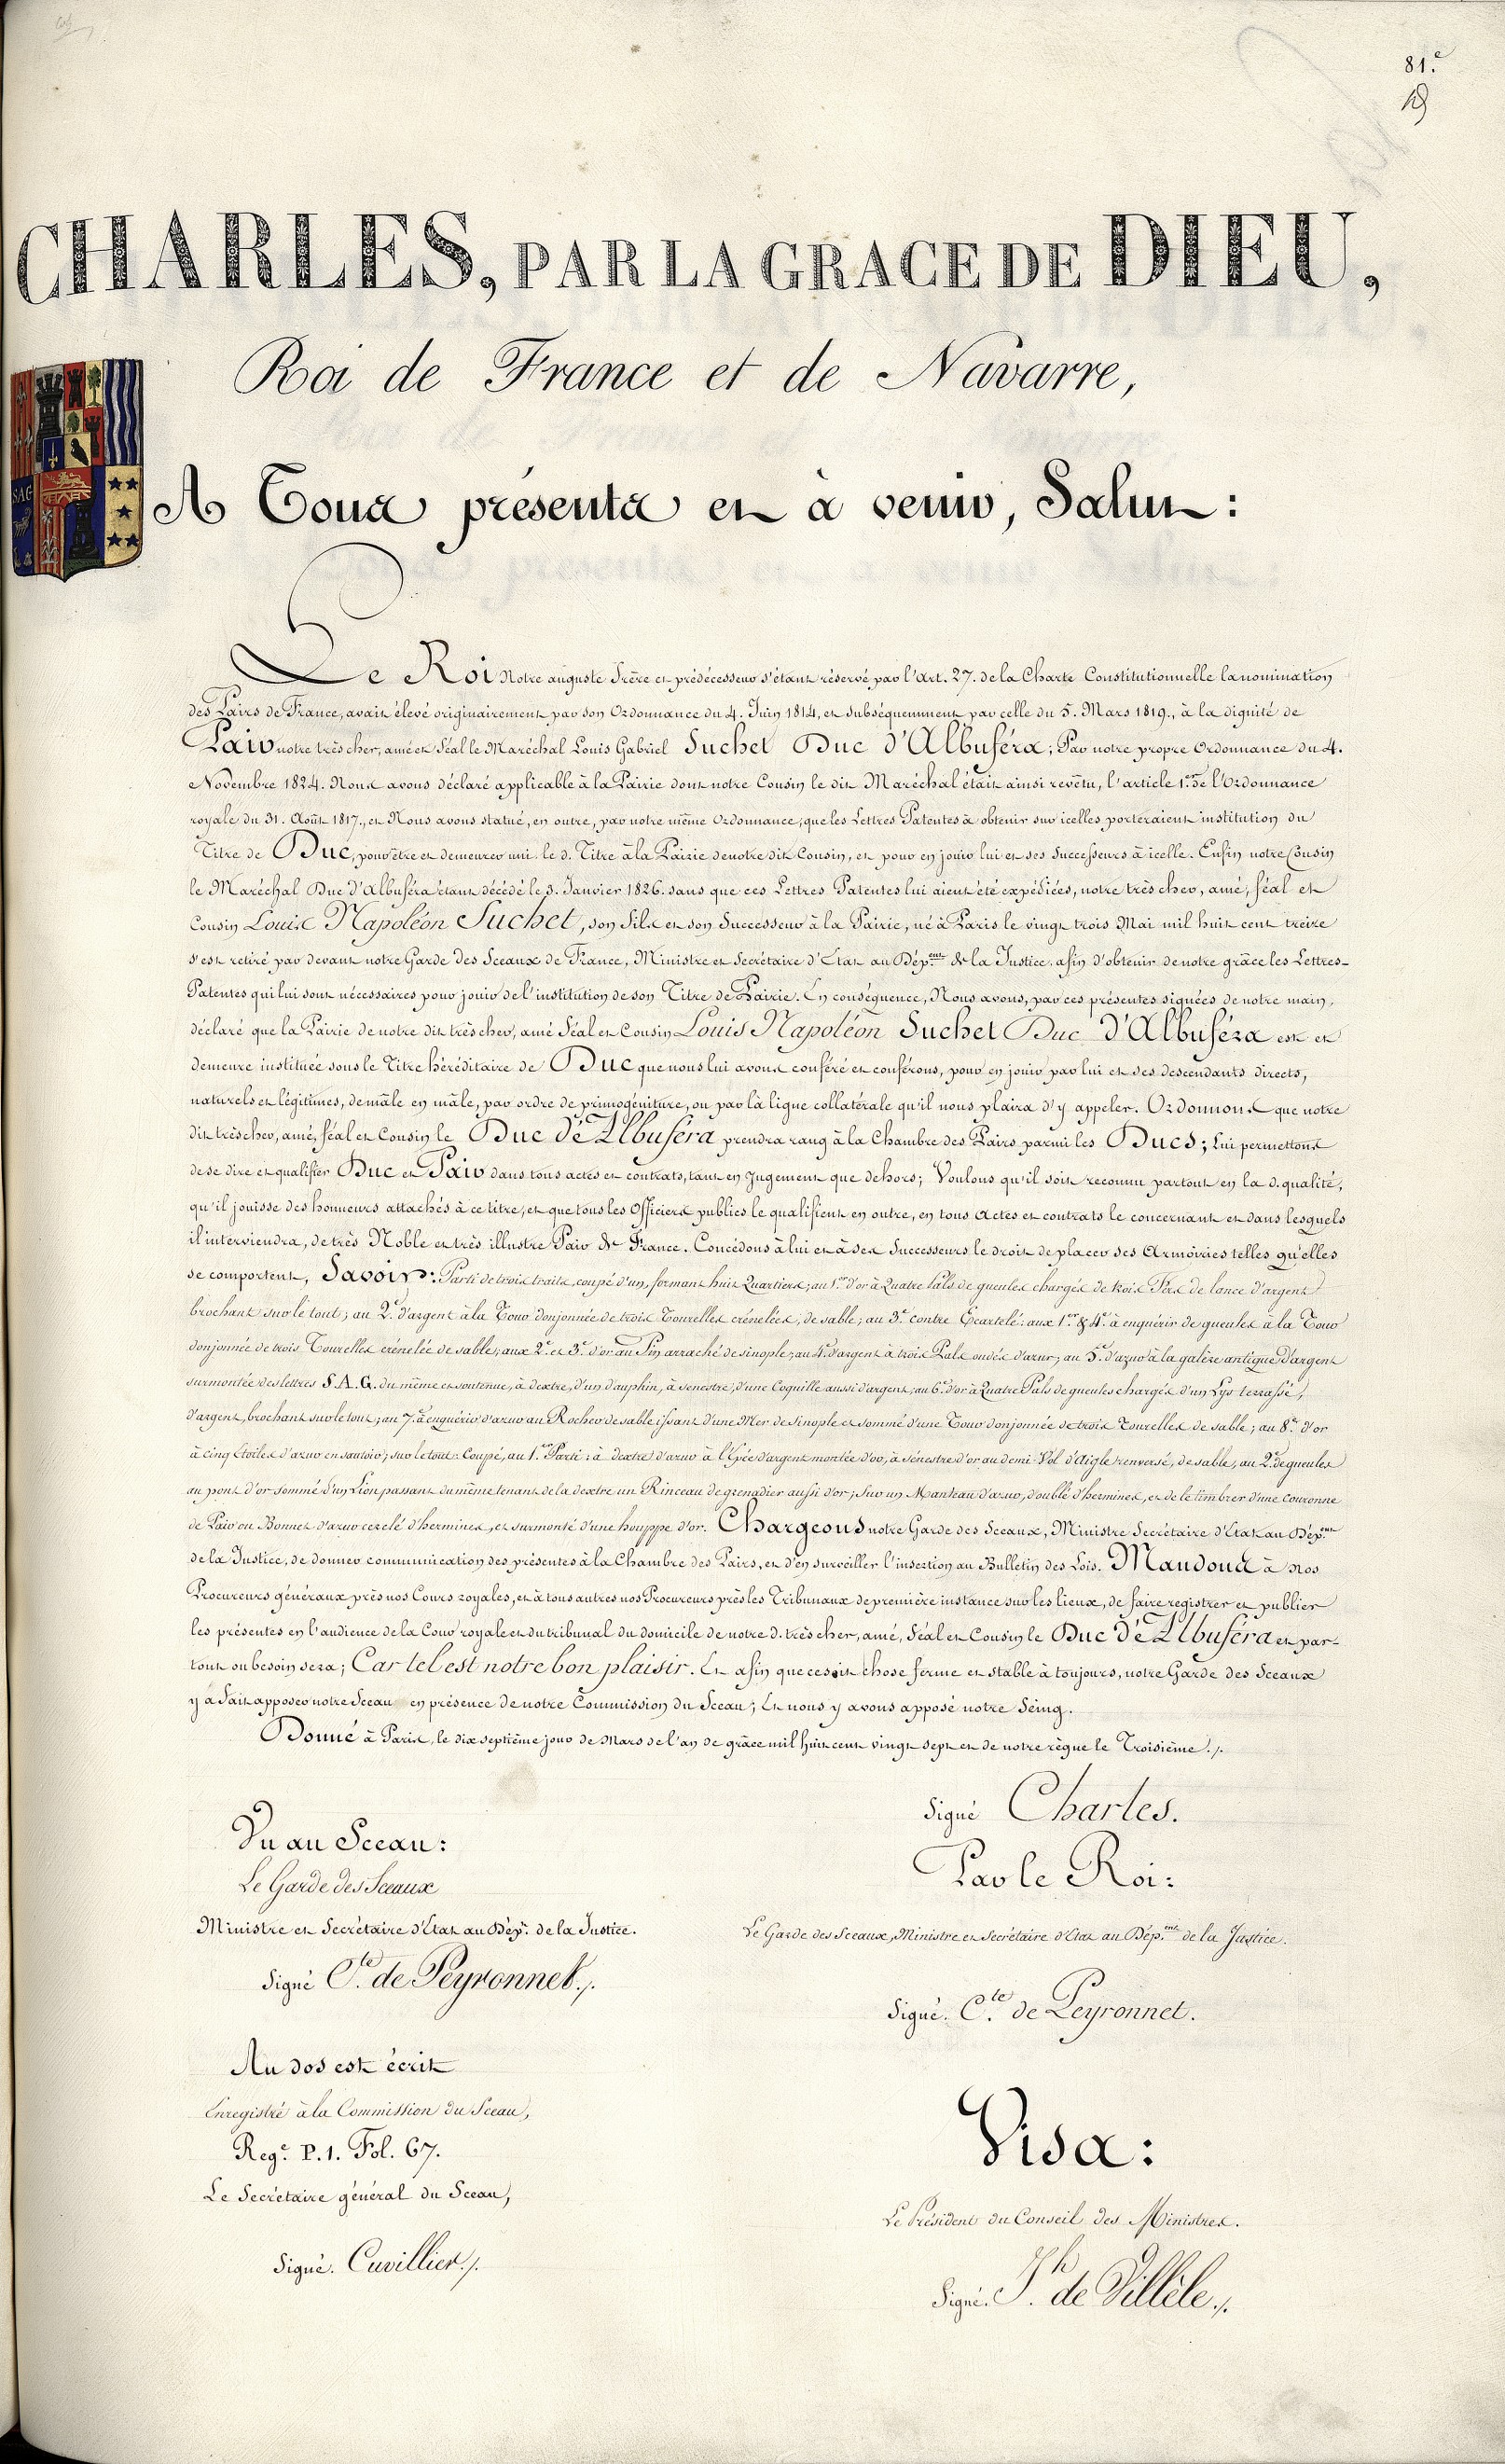 81.e
CHARLES, PAR LA GRACE DE DIEU,
Roi de France et de Navarre,
SAG
A Tous présents et à venir, Salut :
Le Roi Notre auguste Frère et prédécesseur s'étant réservé par l'Art. 27. de la Charte Constitutionnelle la nomination
des Pairs de France, avait élevé originairement par son Ordonnance du 4. Juin 1814, et subséquemment par celle du 5. Mars 1819., à la dignité de
Pair notre très cher, amé et féal le Maréchal Louis Gabriel Suchet Duc d'Albuféra ; Par notre propre Ordonnance du 4.
Novembre 1824. Nous avons déclaré applicable à la Pairie dont notre Cousin le dit Maréchal était ainsi revêtu, l'article 1.er de l'Ordonnance
royale du 31. Août 1817., et Nous avons statué, en outre, par notre même Ordonnance, que les Lettres Patentes à obtenir sur icelles porteraient institution du
Titre de Duc, pour être et demeurer uni le d. Titre à la Pairie de notre dit Cousin, et pour en jouir lui et ses Successeurs à icelle. Enfin notre Cousin
le Maréchal Duc d'Albuféra étant décédé le 3. Janvier 1826. sans que ces Lettres Patentes lui aient été expédiées, notre très cher, amé, féal et
Cousin Louis Napoléon Suchet, son fils et son Successeur à la Pairie, né à Paris le vingt trois Mai mil huit cent treize
s'est retiré par devant notre Garde des Sceaux de France, Ministre et Secrétaire d'Etat au Dép.ent de la Justice, afin d'obtenir de notre grâce les Lettres-
Patentes qui lui sont nécessaires pour jouir de l'institution de son Titre de Pairie. En conséquence, Nous avons, par ces présentes signées de notre main,
déclaré que la Pairie de notre dit très cher, amé féal et Cousin Louis Napoléon Suchet Duc d'Albuféra est et
demeure instituée sous le Titre héréditaire de Duc que nous lui avons conféré et conférons, pour en jouir par lui et ses descendants directs,
naturels et légitimes, de mâle en mâle, par ordre de primogéniture, ou par la ligne collatérale qu'il nous plaira d'y appeler. Ordonnons que notre
dit très cher, amé, féal et Cousin le Duc d'Albuféra prendra rang à la Chambre des Pairs parmi les Ducs ; Lui permettons
de se dire et qualifier Duc et Pair dans tous actes et contrats, tant en Jugement que dehors ; Voulons qu'il soit reconnu partout en la d. qualité,
qu'il jouisse des honneurs attachés à ce titre, et que tous les Officiers publics le qualifient en outre, en tous Actes et contrats le concernant et dans lesquels
il interviendra, de très Noble et très illustre Pair de France. Concédons à lui et à ses Successeurs le droit de placer ses Armoiries telles qu'elles
se comportent, Savoir : Parti de trois traits, coupé d'un, formant huit Quartiers ; au 1.er d'or à Quatre Pals de gueules chargés de trois Fers de lance d'argent
brochant sur le tout ; au 2.e d'argent à la Tour donjonnée de trois Tourelles crénelées, de sable ; au 3.e contre Ecartelé : aux 1.er & 4.e à enquérir de gueules à la Tour
donjonnée de trois Tourelles crénelée de sable ; aux 2.e et 3.e d'or au Pin arraché de sinople ; au 4.e d'argent à trois Pals ondés d'azur ; au 5.e d'azur à la galère antique d'argent
surmontée des lettres S.A.G. du même et soutenue, à dextre, d'un dauphin, à senestre, d'une Coquille aussi d'argent ; au 6.e d'or à Quatre Pals de gueules chargés d'un Lys terrassé,
d'argent, brochant sur le tout ; au 7.e à enquérir d'azur au Rocher de sable issant d'une Mer de Sinople et sommé d'une Tour donjonnée de trois Tourelles de sable ; au 8.e d'or
à cinq étoiles d'azur en sautoir ; sur le tout : Coupé, au 1.er Parti : à dextre d'azur à l'Epée d'argent montée d'or, à senestre d'or au demi Vol d'Aigle renversé, de sable, au 2.e de gueules
au pont d'or sommé d'un Lion passant du même tenant de la dextre un Rinceau de grenadier aussi d'or ; Sur un Manteau d'azur, doublé d'hermines, et de le timbrer d'une couronne
de Pair ou Bonnet d'azur cerclé d'hermines, et surmonté d'une houppe d'or. Chargeons notre Garde des Sceaux, Ministre Secrétaire d'Etat au Dép.ent
de la Justice, de donner communication des présentes à la Chambre des Pairs, et d'en surveiller l'insertion au Bulletin des Lois. Mandons à nos
Procureurs généraux près nos Cours royales, et à tous autres nos Procureurs près les Tribunaux de première instance sur les lieux, de faire registrer et publier
les présentes en l'audience de la Cour royale et du tribunal du domicile de notre d. très cher, amé, féal et Cousin le Duc d'Albuféra et par-
tout où besoin sera ; Car tel est notre bon plaisir. Et afin que ce soit chose ferme et stable à toujours, notre Garde des Sceaux
y a fait apposer notre Sceau en présence de notre Commission du Sceau ; Et nous y avons apposé notre Seing.
Donné à Paris, le dix septième jour de Mars de l'an de grâce mil huit cent vingt sept et de notre règne le Troisième ./.
Signé Charles.
Vu au Sceau :
Par le Roi :
Le Garde des Sceaux
Ministre et Secrétaire d'Etat au Dép.t de la Justice.
Le Garde des Sceaux, Ministre et Secrétaire d'Etat au Dép.ent de la Justice.
Signé C.te de Peyronnet ./.
Signé. C.te de Peyronnet.
Au dos est écrit
Enregistré à la Commission du Sceau,
Reg.e P.1. Fol. 67.
Visa :
Le Secrétaire général du Sceau,
Le Président du Conseil des Ministres.
Signé. Cuvillier ./.
Signé. J.h de Villèle ./.